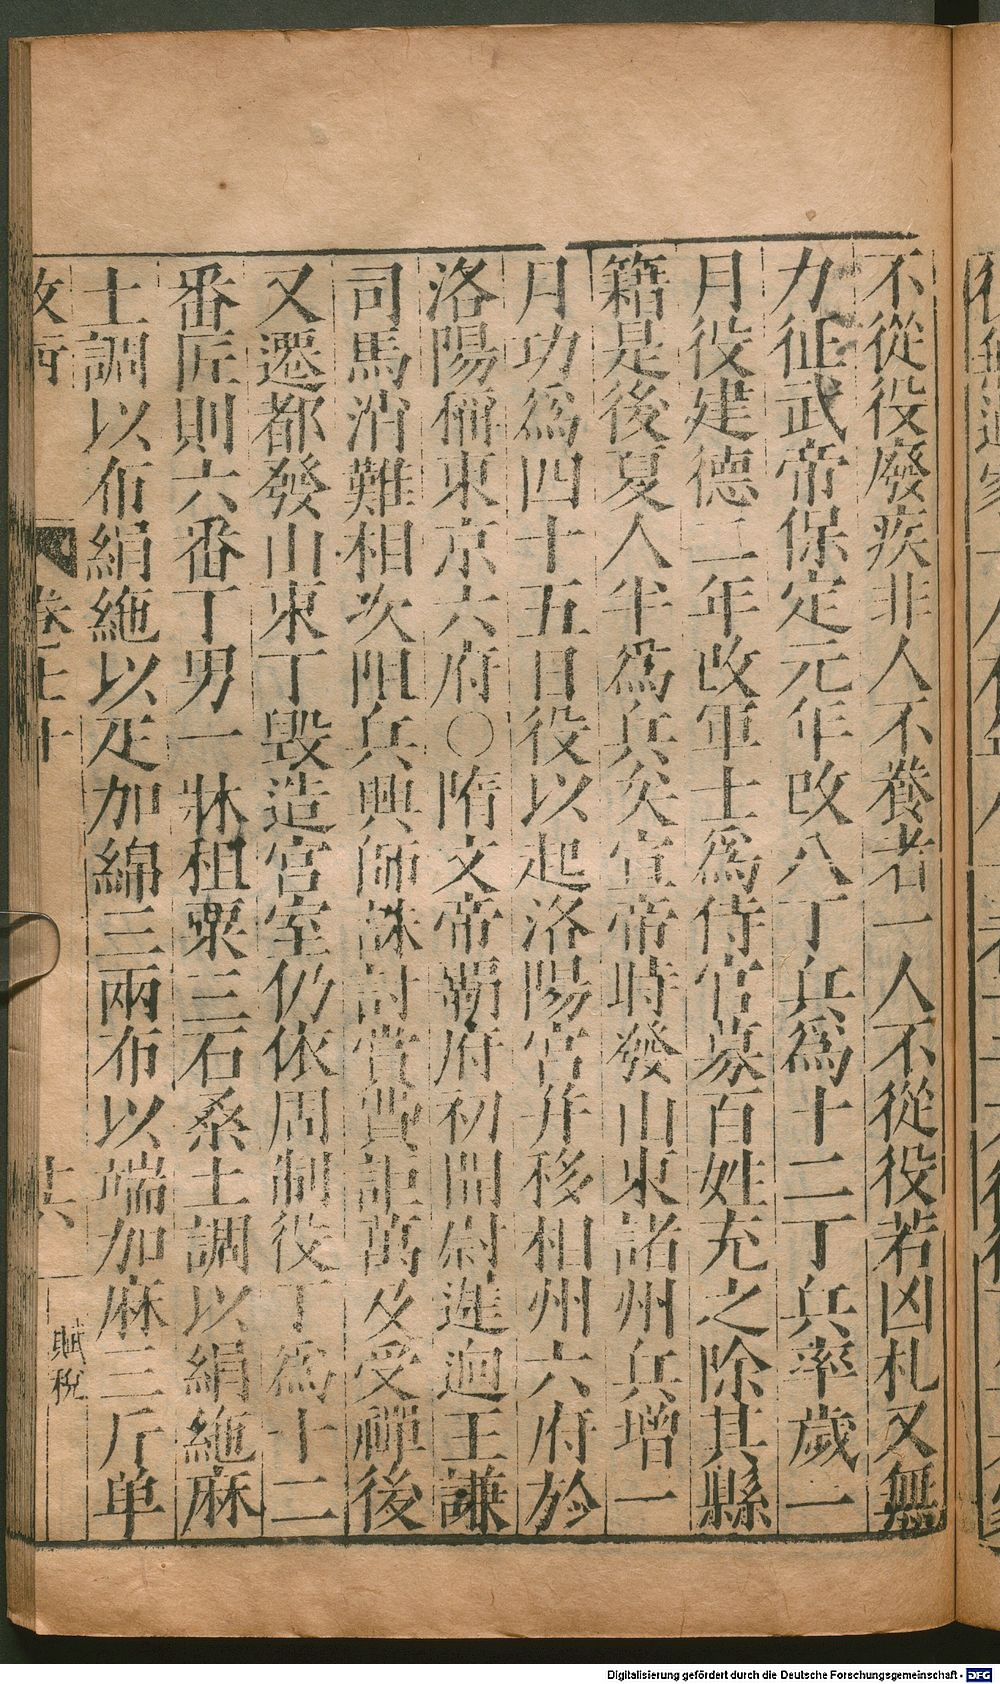 不從役廢疾非人不養者一人不從役若凶札又無
力征武帝保定元年改八丁兵爲十二丁兵率歲一
月役建德二年改軍士爲侍官募百姓充之除其縣
籍是後夏人半爲兵矣宣帝時發山東諸州兵增一
月功爲四十五日役以起洛陽宮并移相州六府於
洛陽稱東京六府○隋文帝霸府初開尉遲迥王謙
司馬消難相次阻兵興師誅討賞費詎萬及受禪後
又遷都發山東丁毀造宮室仍依周制役丁爲十二
番匠則六番丁男一牀租粟三石桑土調以絹絁麻
土調以布絹絁以疋加綿三兩布以端加麻三斤单
卷七十
十六
賦稅
Digitalisierung gefördert durch die Deutsche Forschungsgemeinschaft - DFG